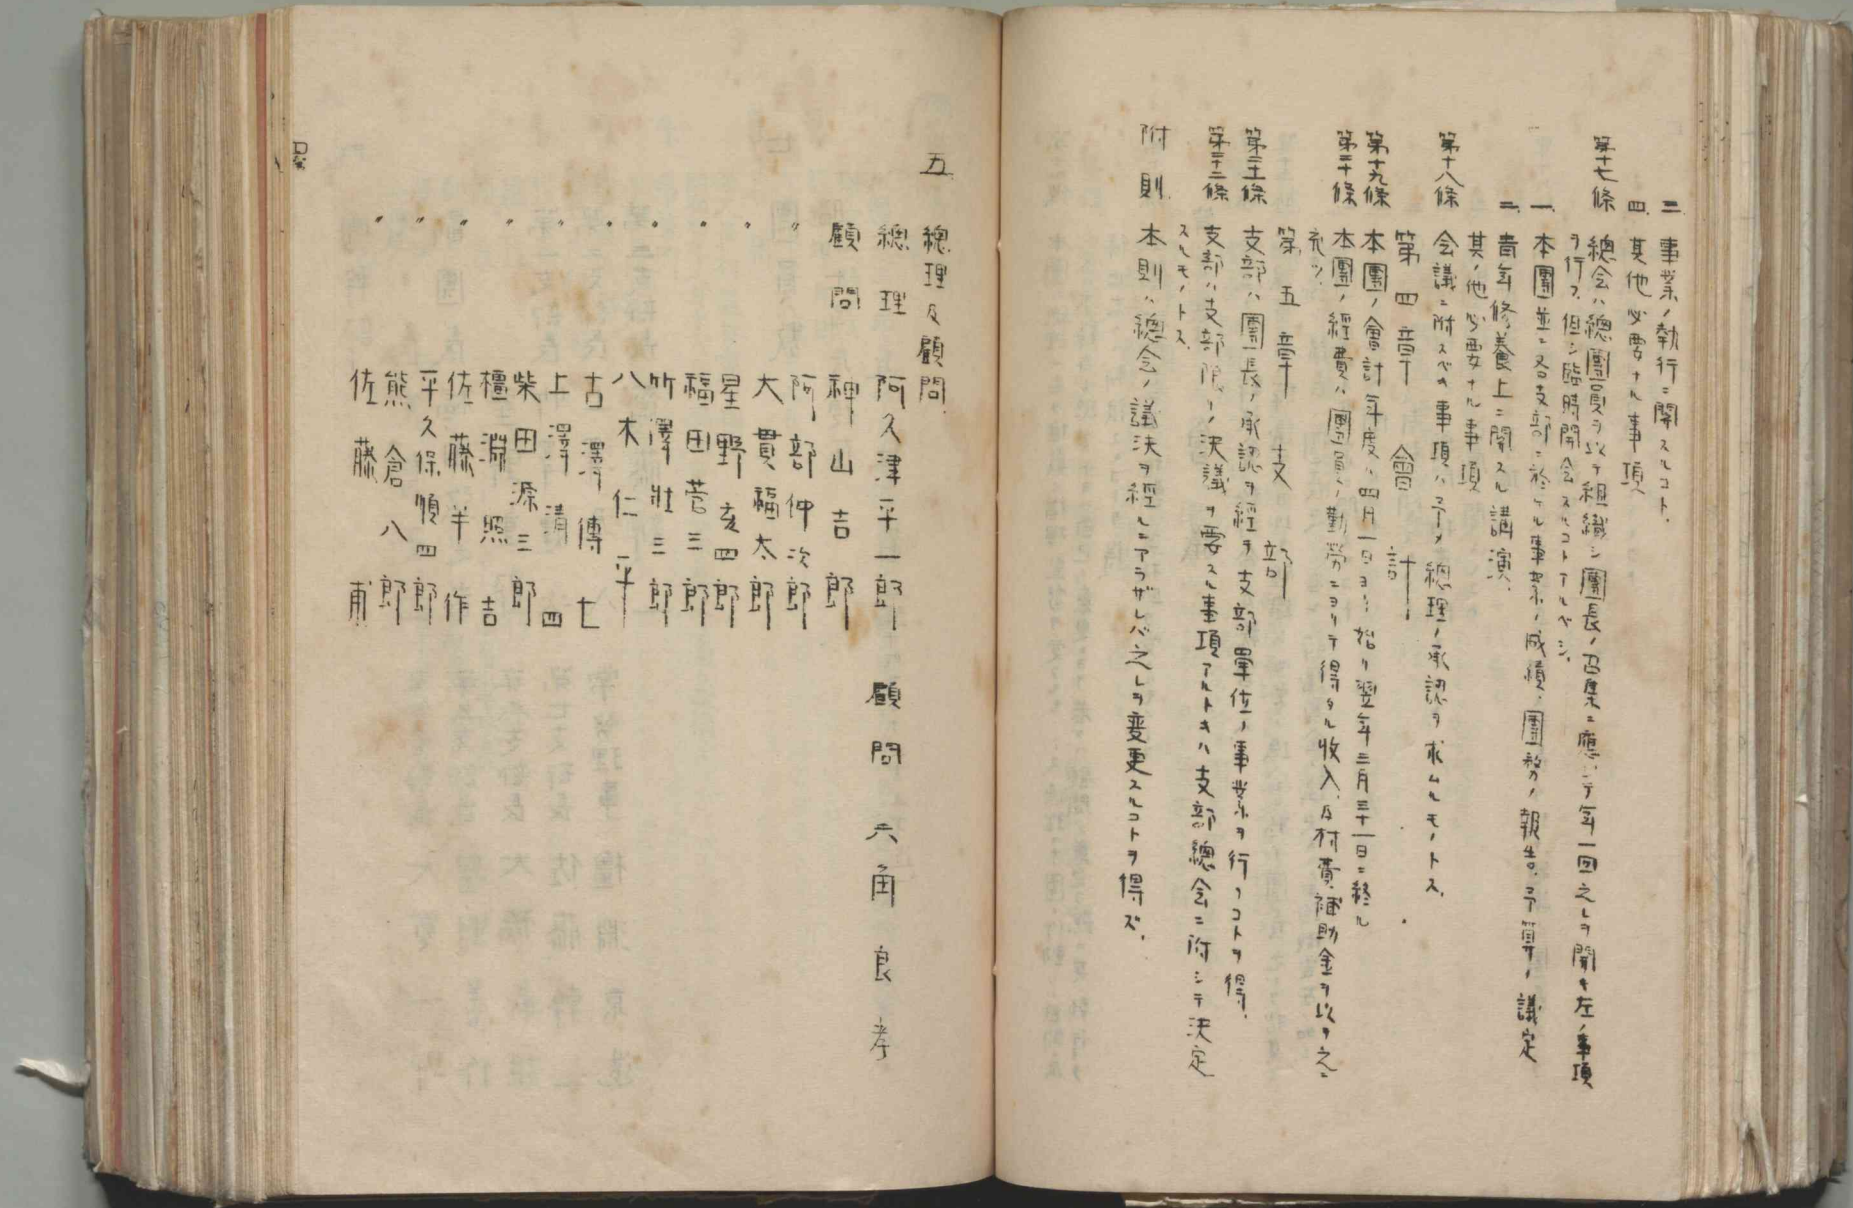 三、事業ノ執行ニ関スルコト、
四、其他必要ナル事項
第十七條 總会ハ總團員ヲ以テ組織シ團長ノ召集ニ應ジテ年一回之レヲ開キ左ノ事項
ヲ行フ、但シ臨時開会スルコトアルベシ、
一、本團並ニ各支部ニ於ケル事業ノ成績、團務ノ報告、予算ノ議定
二、青年修養上ニ関スル講演、
其ノ他必要ナル事項
第十八條 会議ニ附スベキ事項ハ予メ總理ノ承認ヲ求ムルモノトス、
第四章 會計
第十九條 本團ノ會計年度ハ四月一日ヨリ始リ翌年三月三十一日ニ終ル
第二十條 本團ノ經費ハ團員ノ勤労ニヨリテ得タル收入、及村費補助金ヲ以テ之ニ
充ツ、
第五章 支部
第二十一條 支部ハ團長ノ承認ヲ経テ支部單位ノ事業ヲ行フコトヲ得、
第二十二條 支部ハ支部限リノ決議ヲ要スル事項アルトキハ支部總会ニ附シテ決定
スルモノトス、
附則、本則ハ總会ノ議決ヲ經ルニアラザレバ之レヲ変更スルコトヲ得ズ、
五、總理及顧問、
總理 阿久津平一郎 顧問 六角良孝
顧問 神山吉郎
〃 阿部仲次郎
〃 大貫福太郎
〃 星野亥四郎
〃 福田菅三郎
〃 竹澤壯三郎
〃 八木仁平
〃 古澤傳七
〃 上澤清四
〃 柴田源三郎
〃 檀淵照吉
〃 佐藤半作
〃 平久保順四郎
〃 熊倉八郎
〃 佐藤甫